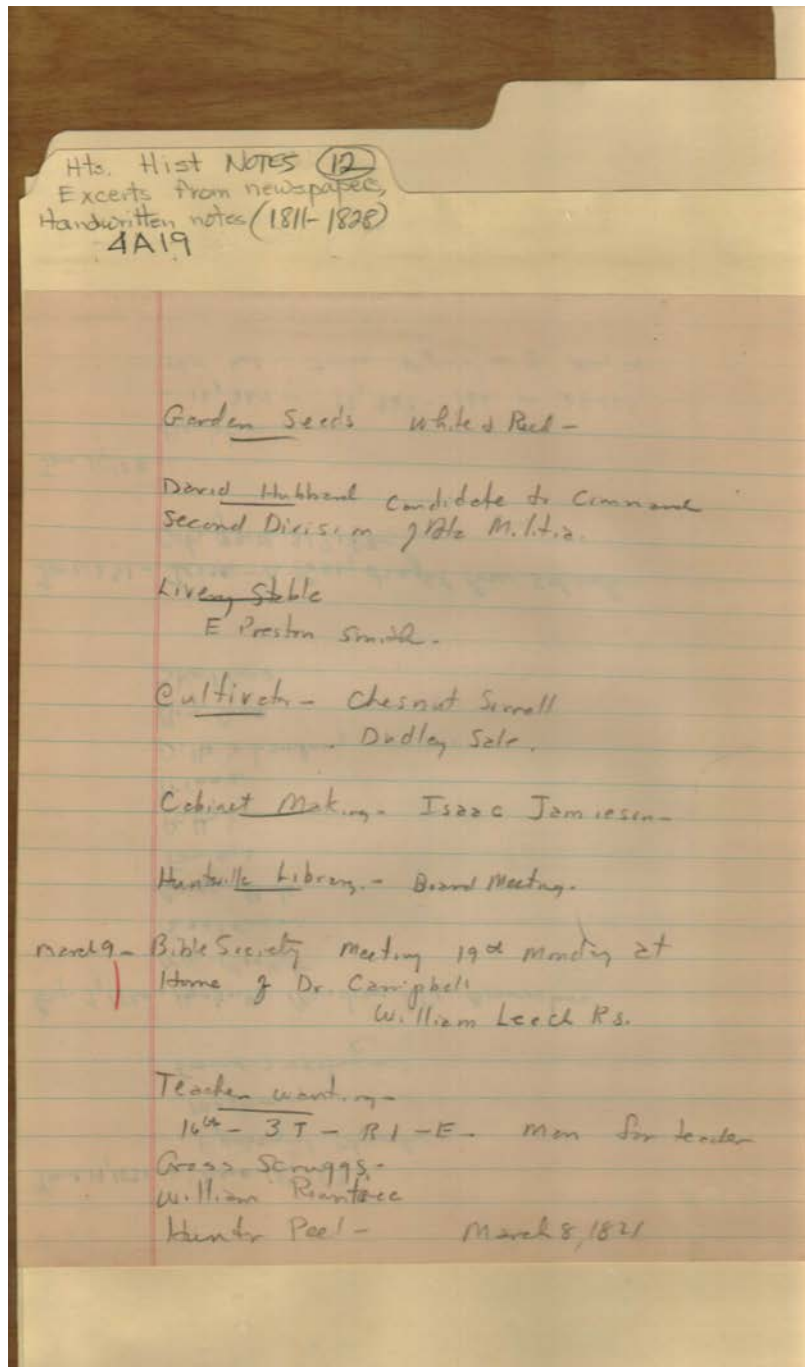 Hts. Hist NOTES 12
Excerts from newspapers,
Handwritten notes (1811-1828)
4A19
Garden Seeds White & Reed -
David Hubbard Candidate to Command
Second Division of Ala Militia.
Livery Stable
E Preston Smith.
Cultivator - Chesnut Sorrell
Dudley Sale.
Cabinet Making - Isaac Jamieson -
Huntsville Library. - Board Meeting.
March 9 - Bible Society Meeting 19th Monday at
Home of Dr. Campbell
William Leech Rs.
Teacher wanting -
16th - 3T - R1 - E - Man for teacher
Gross Scruggs. -
William Rountree
Hunter Peel - March 8, 1821